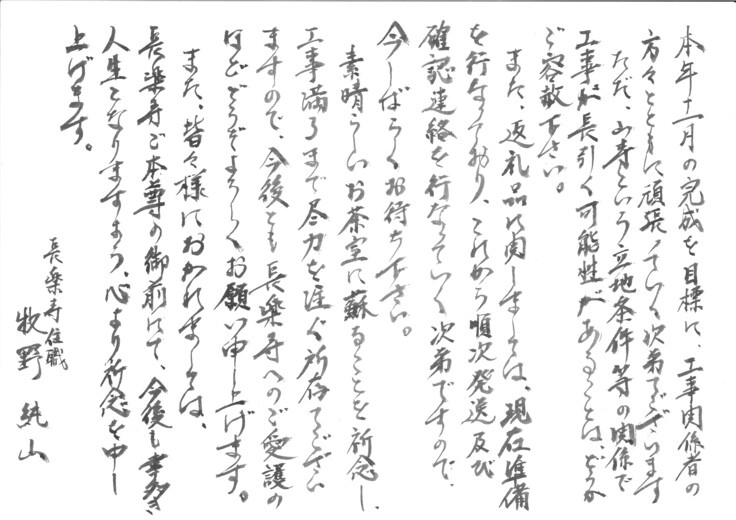 本年十一月の完成を目標に、工事関係者の
方々とともに頑張っていく次第でございます
ただ、山寺という立地条件等の関係で
工事が長引く可能性があることは、どうか
ご容赦下さい。
また、返礼品に関しましては、現在準備
を行なっており、これから順次発送及び
確認連絡を行なっていく次第ですので、
今しばらくお待ち下さい。
素晴らしいお茶室に蘇ることを祈念し、
工事満るまで尽力を注ぐ所存でござい
ますので、今後とも長楽寺へのご愛護の
ほどどうぞよろしくお願い申し上げます。
また、皆々様におかれましては、
長楽寺ご本尊の御前にて、今後も幸多き
人生となりますよう、心より祈念を申し
上げます。
長楽寺住職
牧野純山